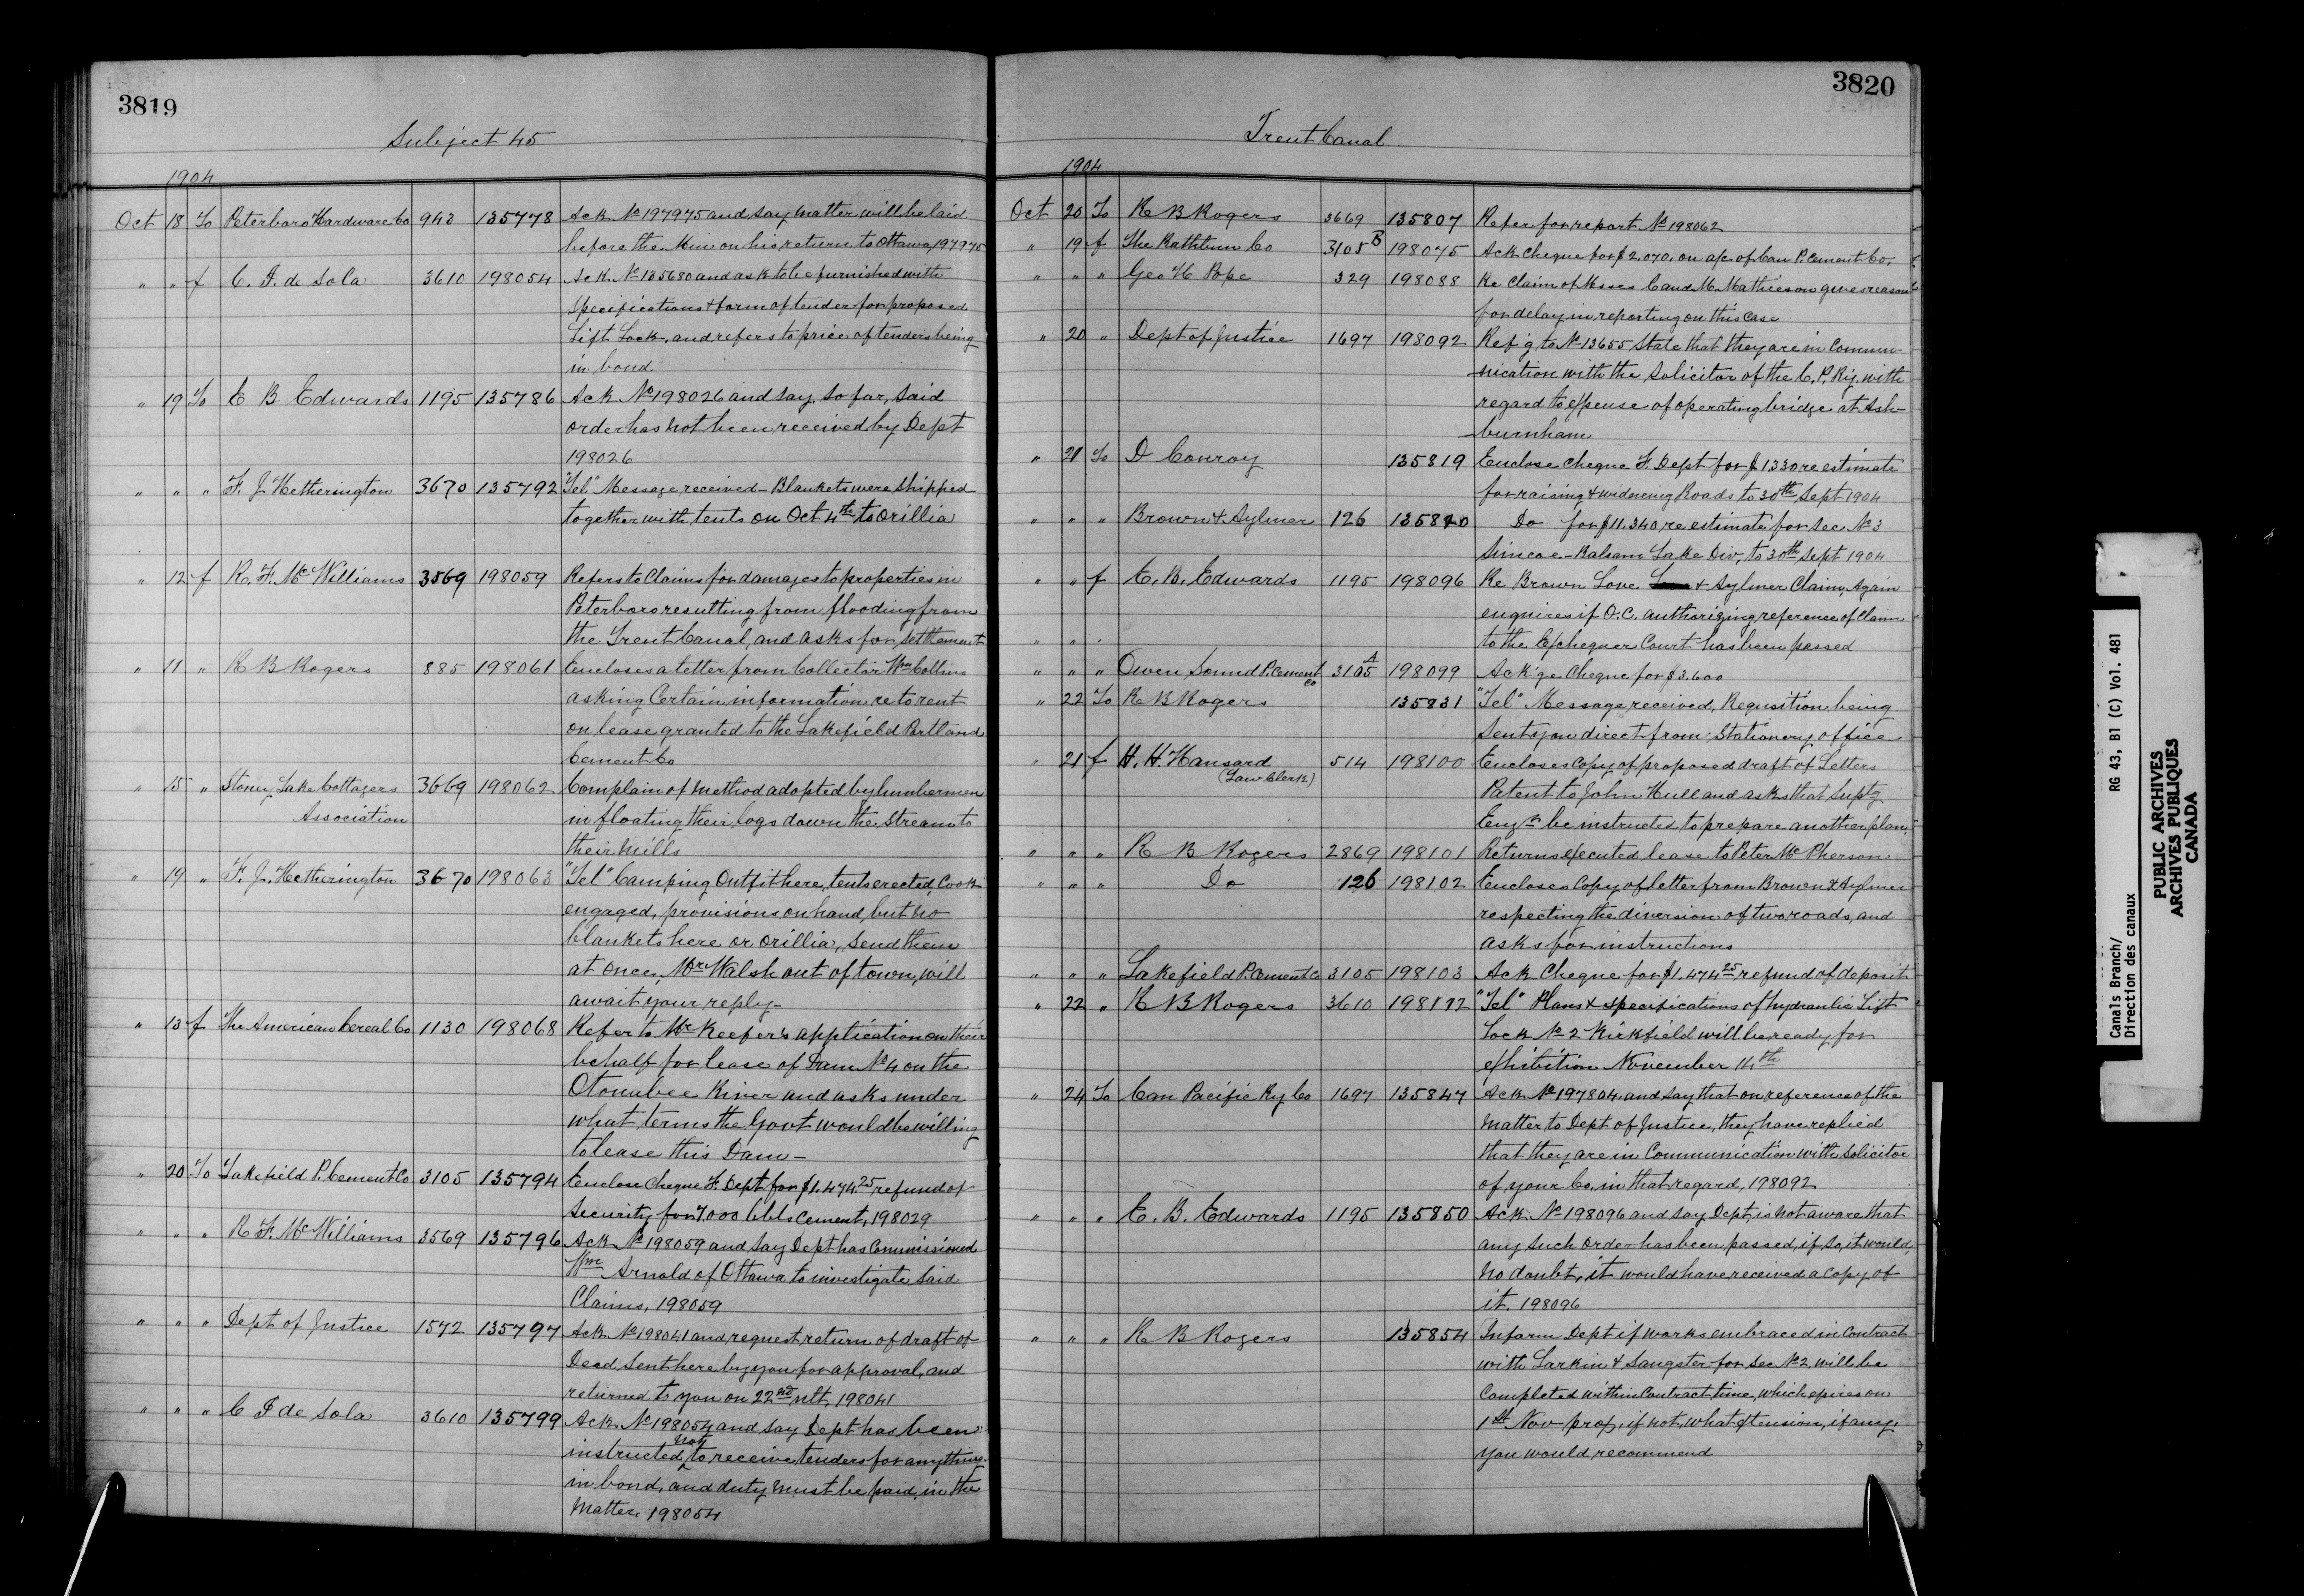 3819
Subject 45
1904
Oct 18 To Peterboro Hardware Co 943 135778 Ack No 197975 and say matter will be laid
before the Min on his return to Ottawa, 197975
" " f C. I. de Sola 3610 198054 Ack No 135680 and ask to be furnished with
specifications & form of tender for proposed
Lift Lock, and refers to price of tenders being
in bond
" 19 To E B Edwards 1195 135786 Ack No 198026 and say, so far, said
order has not been received by Dept
198026
" " " F. J. Hetherington 3670 135792 "Tel" Message received - Blankets were shipped
together with tents on Oct 4th to Orillia
" 12 f R. F. McWilliams 3569 198059 Refers to Claims for damages to properties in
Peterboro resulting from flooding from
the Trent Canal, and asks for settlement
" 11 " R B Rogers 885 198061 Encloses a letter from Collector Wm Collins
asking Certain information re to rent
on lease granted to the Lakefield Portland
Cement Co
" 15 " Stoney Lake Cottagers 3669 198062 Complain of method adopted by lumbermen
Association in floating their logs down the stream to
their mills
" 19 " F. J. Hetherington 3670 198063 "Tel" Camping Outfit here, tents erected, Cook
engaged, provisions on hand, but no
blankets here or Orillia, send them
at once, Mr Walsh out of town, will
await your reply -
" 13 f The American Cereal Co 1130 198068 Refer to Mr Keefer's application on their
behalf for lease of Dam No 4 on the
Otonabee River and asks under
what terms the Govt would be willing
to lease this Dam -
" 20 To Lakefield P. Cement Co 3105 135794 Enclose Cheque F. Dept for $1.474.25 refund of
Security for 7.000 bbls Cement, 198029
" " " R F. McWilliams 3569 135796 Ack No 198059 and say Dept has Commissioned
Wm Arnold of Ottawa to investigate said
Claims, 198059
" " " Dept of Justice 1572 135797 Ack No 198041 and request return of draft of
Deed, sent here by you for approval, and
returned to you on 22nd ult, 198041
" " " C I de Sola 3610 135799 Ack No 198054 and say Dept has been
instructed not to receive tenders for anything
in bond, and duty must be paid, in the
Matter. 198054
3820
Trent Canal
1904
Oct 20 To R B Rogers 3669 135807 Refer for report No 198062
" 19 f The Rathbun Co 3105 B 198075 Ack Cheque for $2.070. on a/c of Can P. Cement Co.
" " " Geo H Pope 329 198088 Re Claim of Messrs C and M. Mathieson gives reasons
for delay in reporting on this Case
" 20 " Dept of Justice 1697 198092 Ref'g to No 13655 State that they are in Commu-
nication with the Solicitor of the C. P. Ry. with
regard to expense of operating bridge at Ash-
burnham
" 21 To D Conroy 135819 Enclose Cheque F. Dept for $1330 re estimate
for raising & widening Roads to 30th Sept 1904
" " " Brown & Aylmer 126 135820 Do for $11.340, re estimate for Sec No 3
Simcoe - Balsam Lake Div, to 30th Sept 1904
" " f E. B. Edwards 1195 198096 Re Brown Love & Aylmer Claim, Again
enquires if O.C. authorizing reference of Claim
" " " to the Exchequer Court has been passed
" " " Owen Sound P. Cement Co 3105 A 198099 Ack'ge Cheque for $3.600
" 22 To R B Rogers 135831 "Tel" Message received, Requisition being
sent you direct from Stationery office
" 21 f H. H. Hansard 514 198100 Encloses Copy of proposed draft of Letters
(Law Clerk)
Patent to John Hull and asks that Suptg
Engr be instructed to prepare another plan,
" " " R B Rogers 2869 198101 Returns executed lease to Peter McPherson
" " " Do 126 198102 Encloses Copy of letter from Brown & Aylmer
respecting the diversion of two roads, and
asks for instructions
" " " Lakefield P. Cement Co 3105 198103 Ack Cheque for $1.474.25 refund of deposit
" 22 " R B Rogers 3610 198112 "Tel" Plans & specifications of hydraulic Lift
Lock No 2 Kirkfield will be ready for
exhibition November 14th
" 24 To Can Pacific Ry Co 1697 135847 Ack No 197804 and say that on reference of the
matter to Dept of Justice, they have replied
that they are in Communication with Solicitor
of your Co, in that regard, 198092
" " " E. B. Edwards 1195 135850 Ack No 198096 and say Dept, is not aware that
any such order has been passed, if so, it would,
no doubt, it would have received a Copy of
it. 198096
" " " R B Rogers 135854 Inform Dept if works embraced in Contract
with Larkin & Sangster for Sec No 2, will be
Completed within Contract time, which expires on
1st Nov prox, if not, what extension, if any,
you would recommend
Canals Branch/
Direction des canaux
RG 43, B1 (C) Vol. 481
PUBLIC ARCHIVES
ARCHIVES PUBLIQUES
CANADA